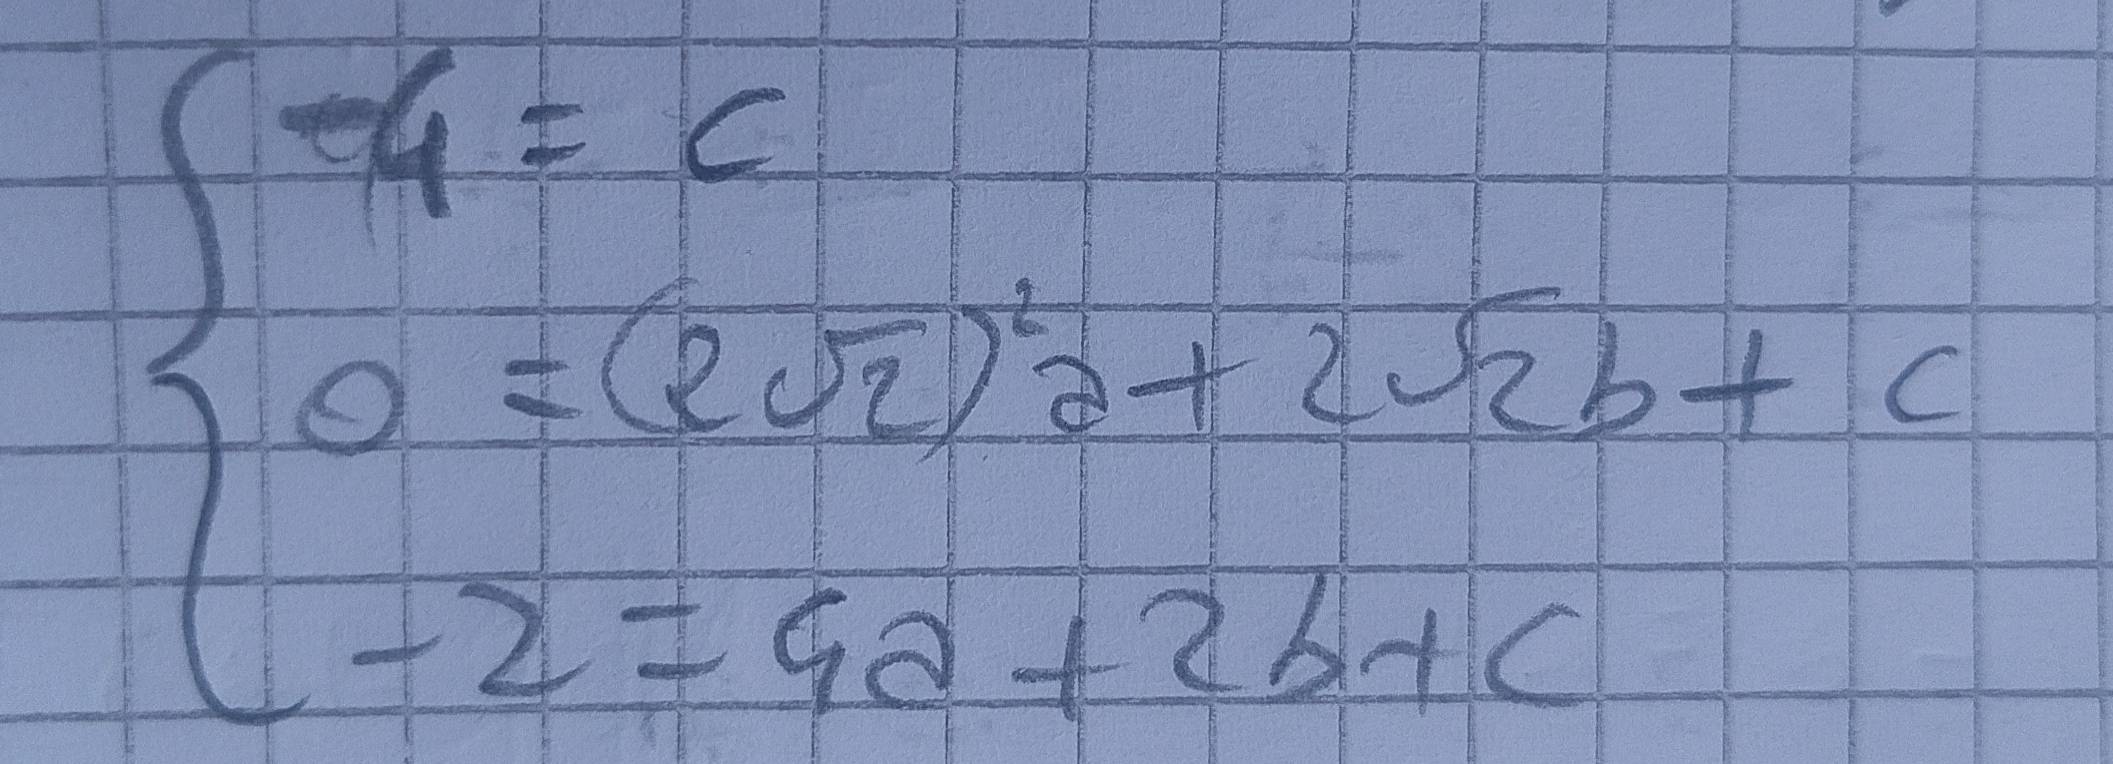 -4 = c
0 = (2√2)²a + 2√2b + c
-2 = 4a + 2b + c